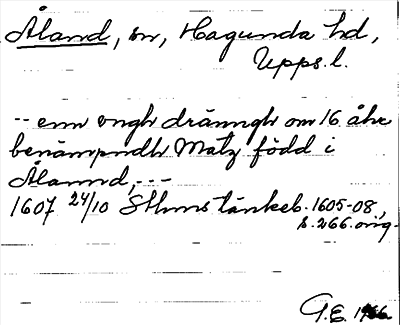 Åland, sn, Hagunda hd,
Upps. l.
-- enn vngh dränngh om 16 åhr
benämpndh Matz född i
Åland, ---
1607 24/10 Sthms tänkeb. 1605-08,
s. 266. orig.
G.E. 1966